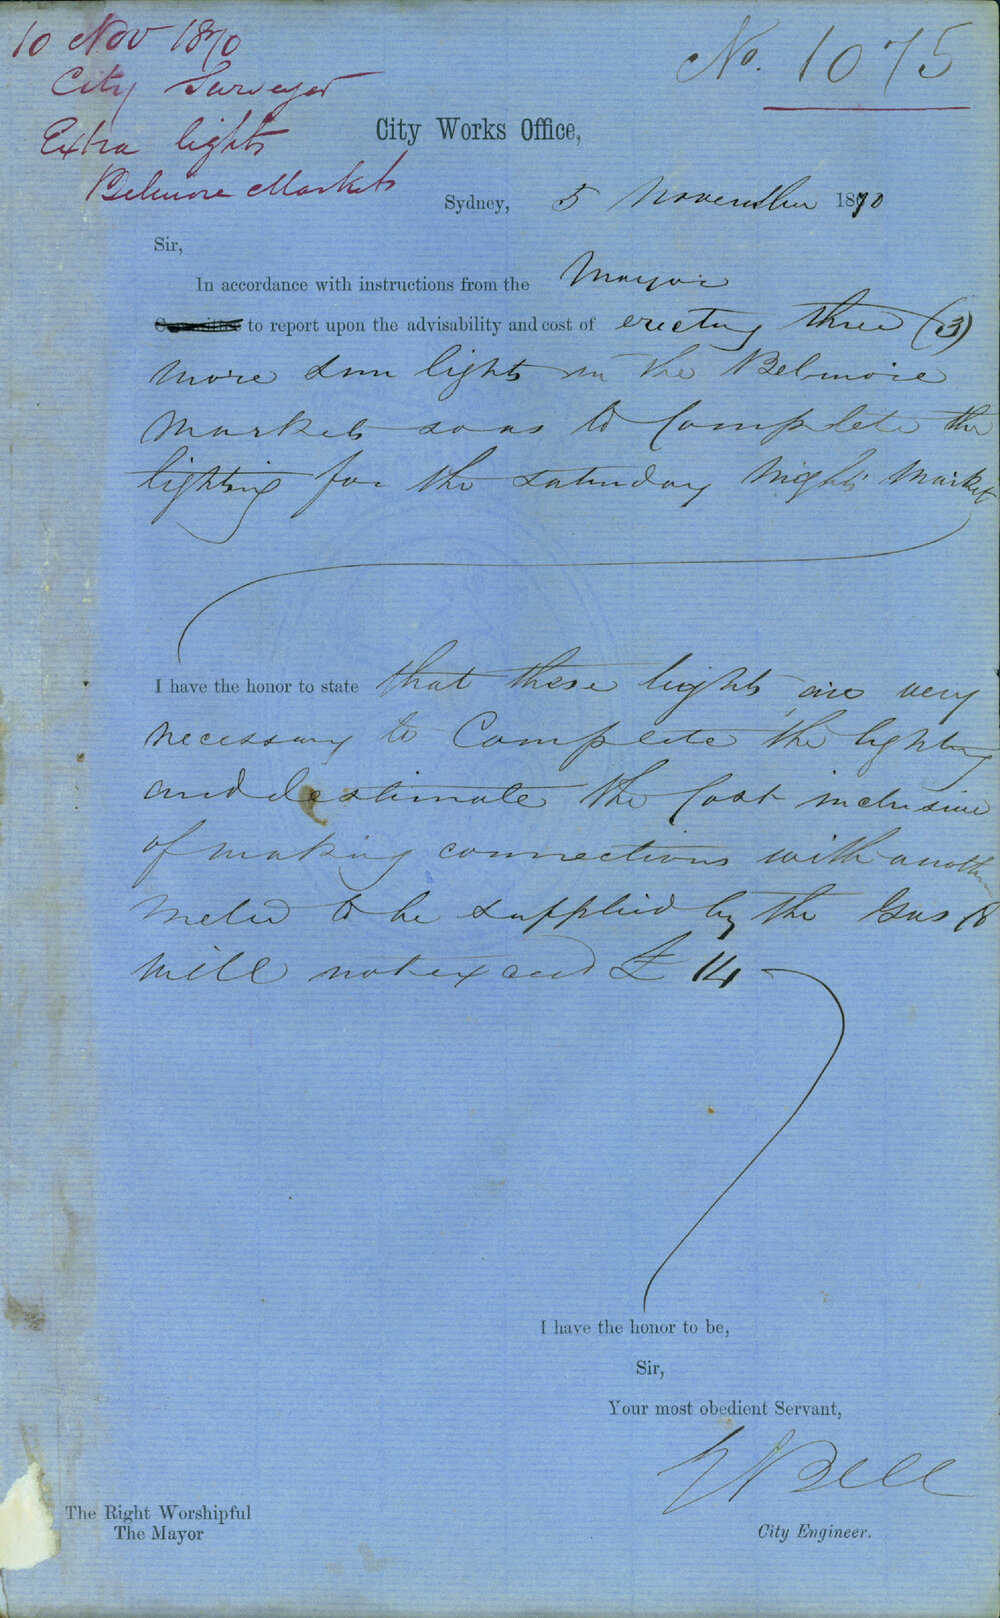 10 Nov 1870
City Surveyor
Extra lights
Belmore Markets
No. 1075
City Works Office,
Sydney, 5 November 1870
Sir,
In accordance with instructions from the Mayor
Committee to report upon the advisability and cost of erecting three (3)
more Sun lights in the Belmore
Markets so as to Complete the
lighting for the Saturday Nights Market
I have the honor to state that these lights are very
necessary to Complete the lighting
and estimate the Cost inclusive
of making connections with another
meter to be supplied by the Gas Co
will not exceed £ 14
I have the honor to be,
Sir,
Your most obedient Servant,
Bell
City Engineer.
The Right Worshipful
The Mayor